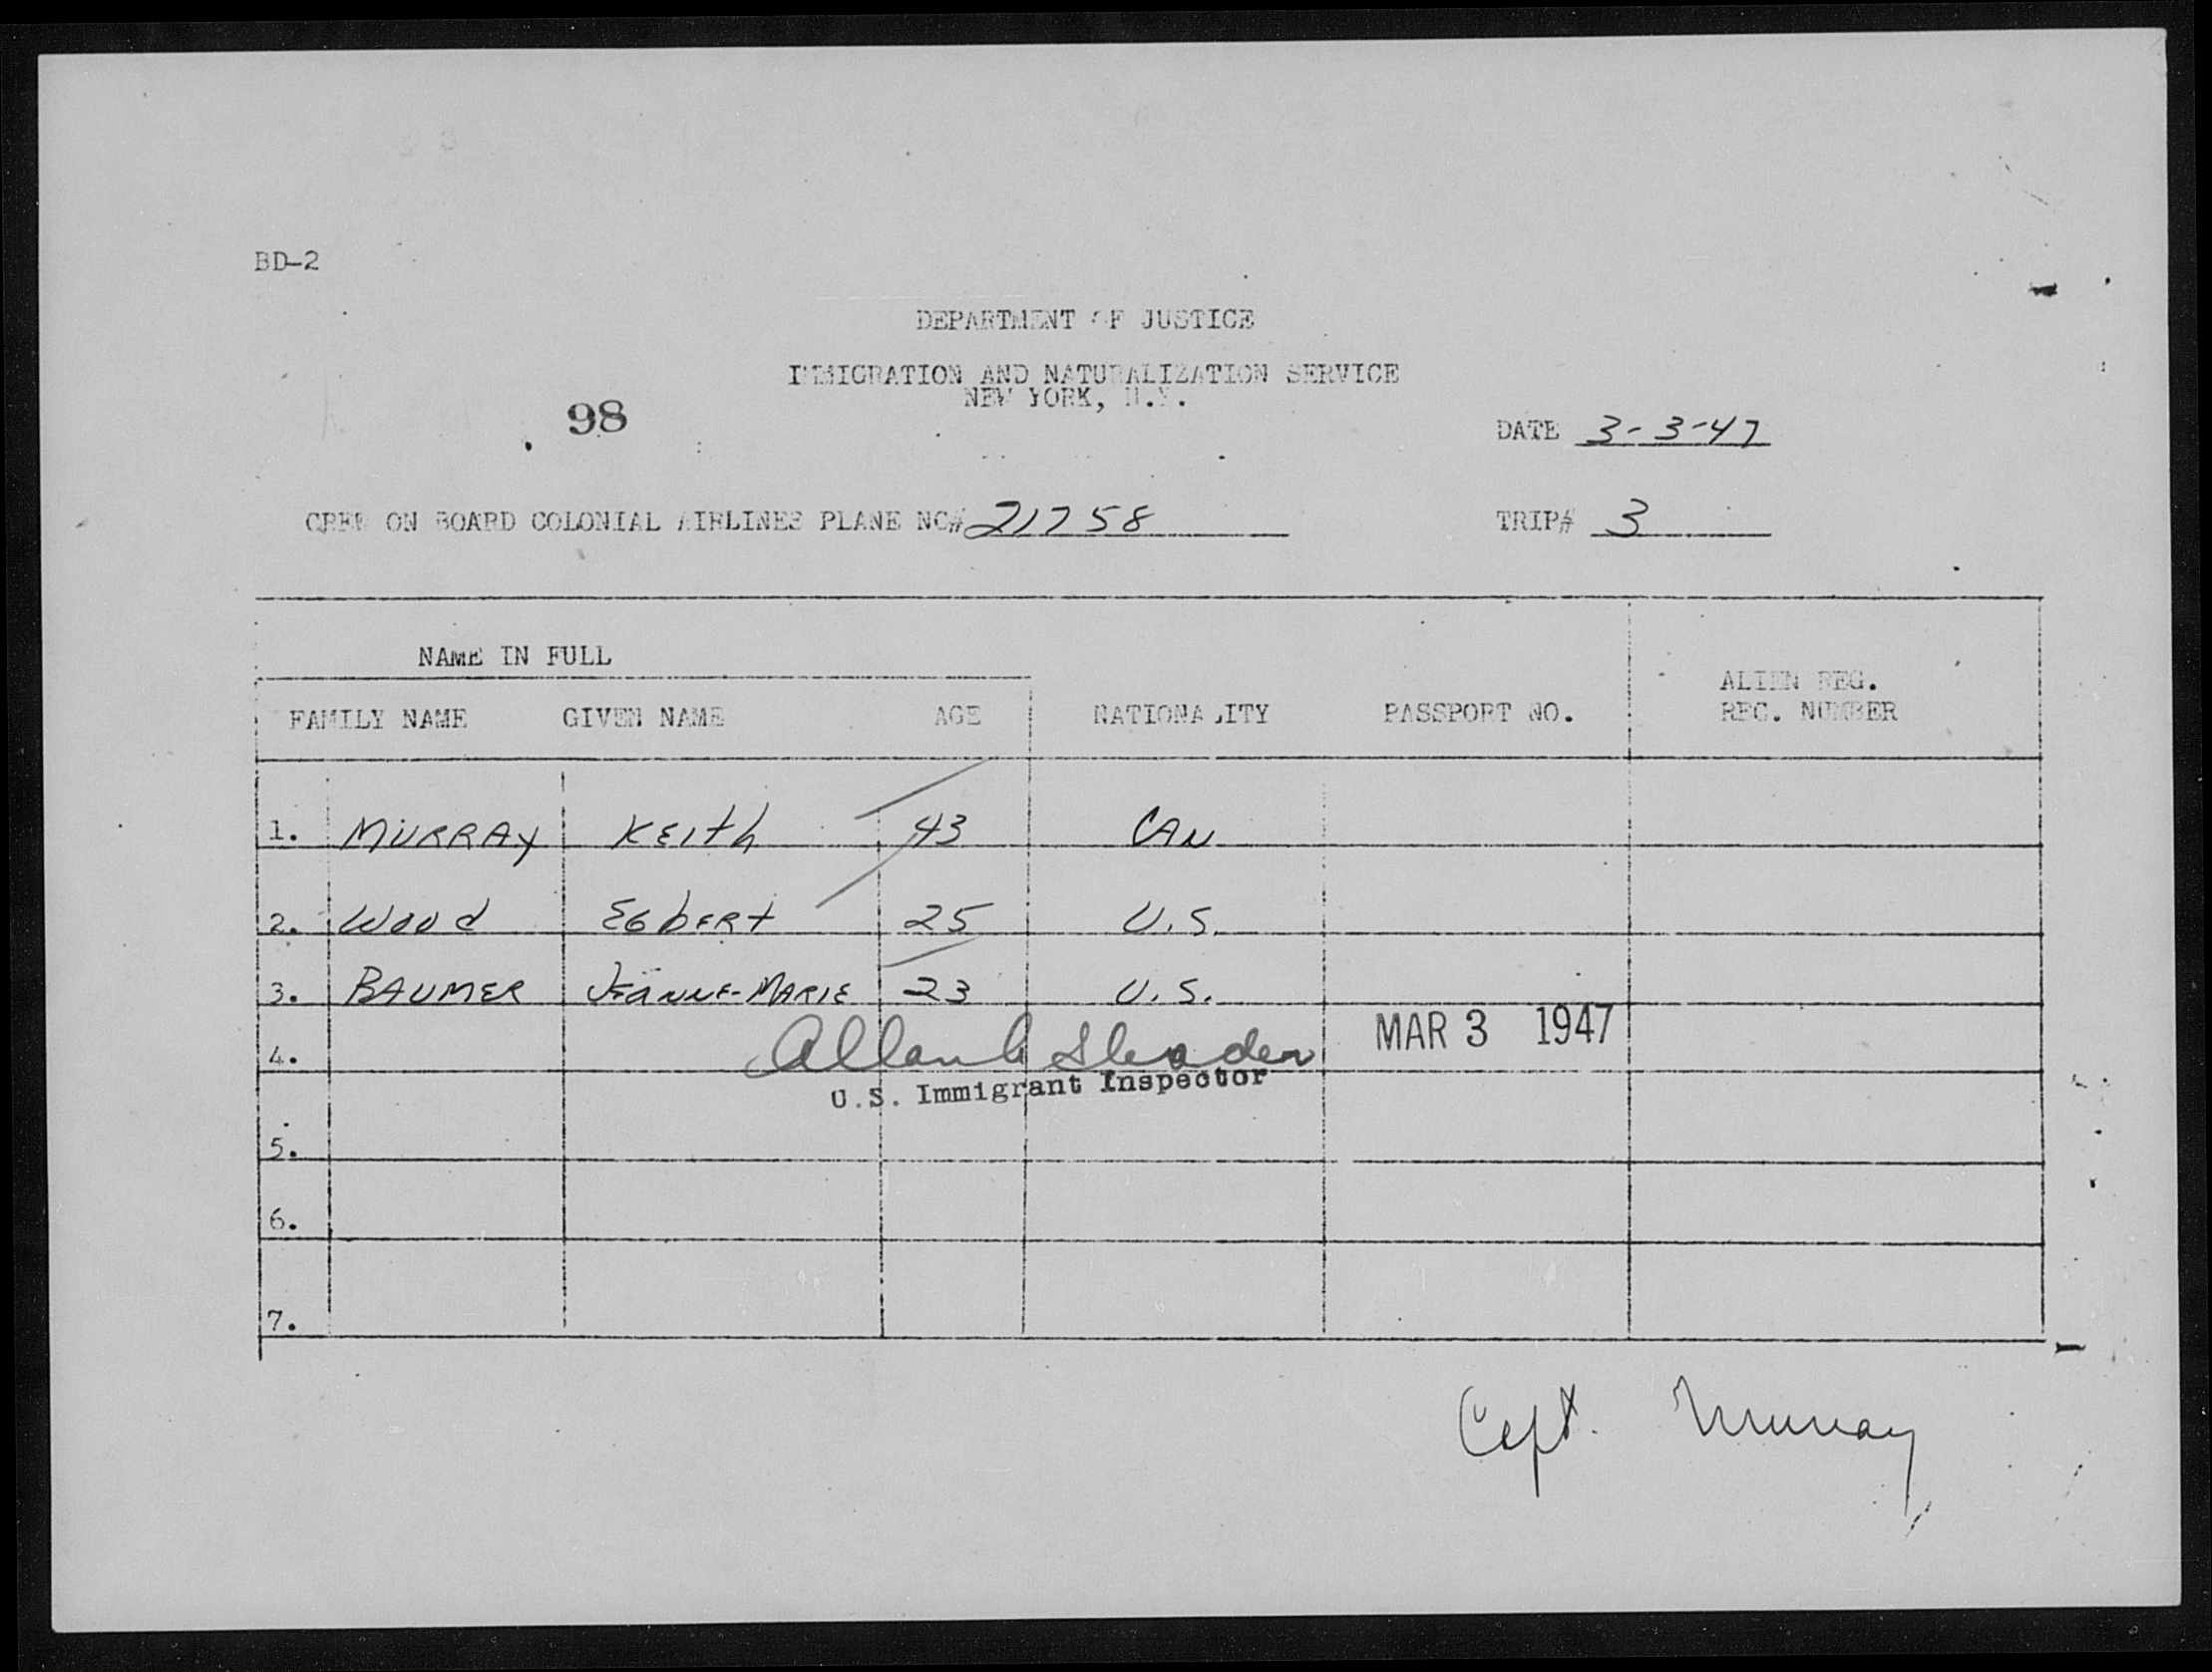 BD-2
DEPARTMENT OF JUSTICE
IMMIGRATION AND NATURALIZATION SERVICE
NEW YORK, N.Y.
98
DATE 3-3-47
CREW ON BOARD COLONIAL AIRLINES PLANE NC# 21758
TRIP# 3
NAME IN FULL
FAMILY NAME GIVEN NAME AGE NATIONALITY PASSPORT NO. ALIEN REG.
REC. NUMBER
1. MURRAY KEITH 43 CAN
2. WOOD EGBERT 25 U.S.
3. BAUMER JEANNE-MARIE 23 U.S.
4. Allan MAR 3 1947
U.S. Immigrant Inspector
5.
6.
7.
Capt. Murray